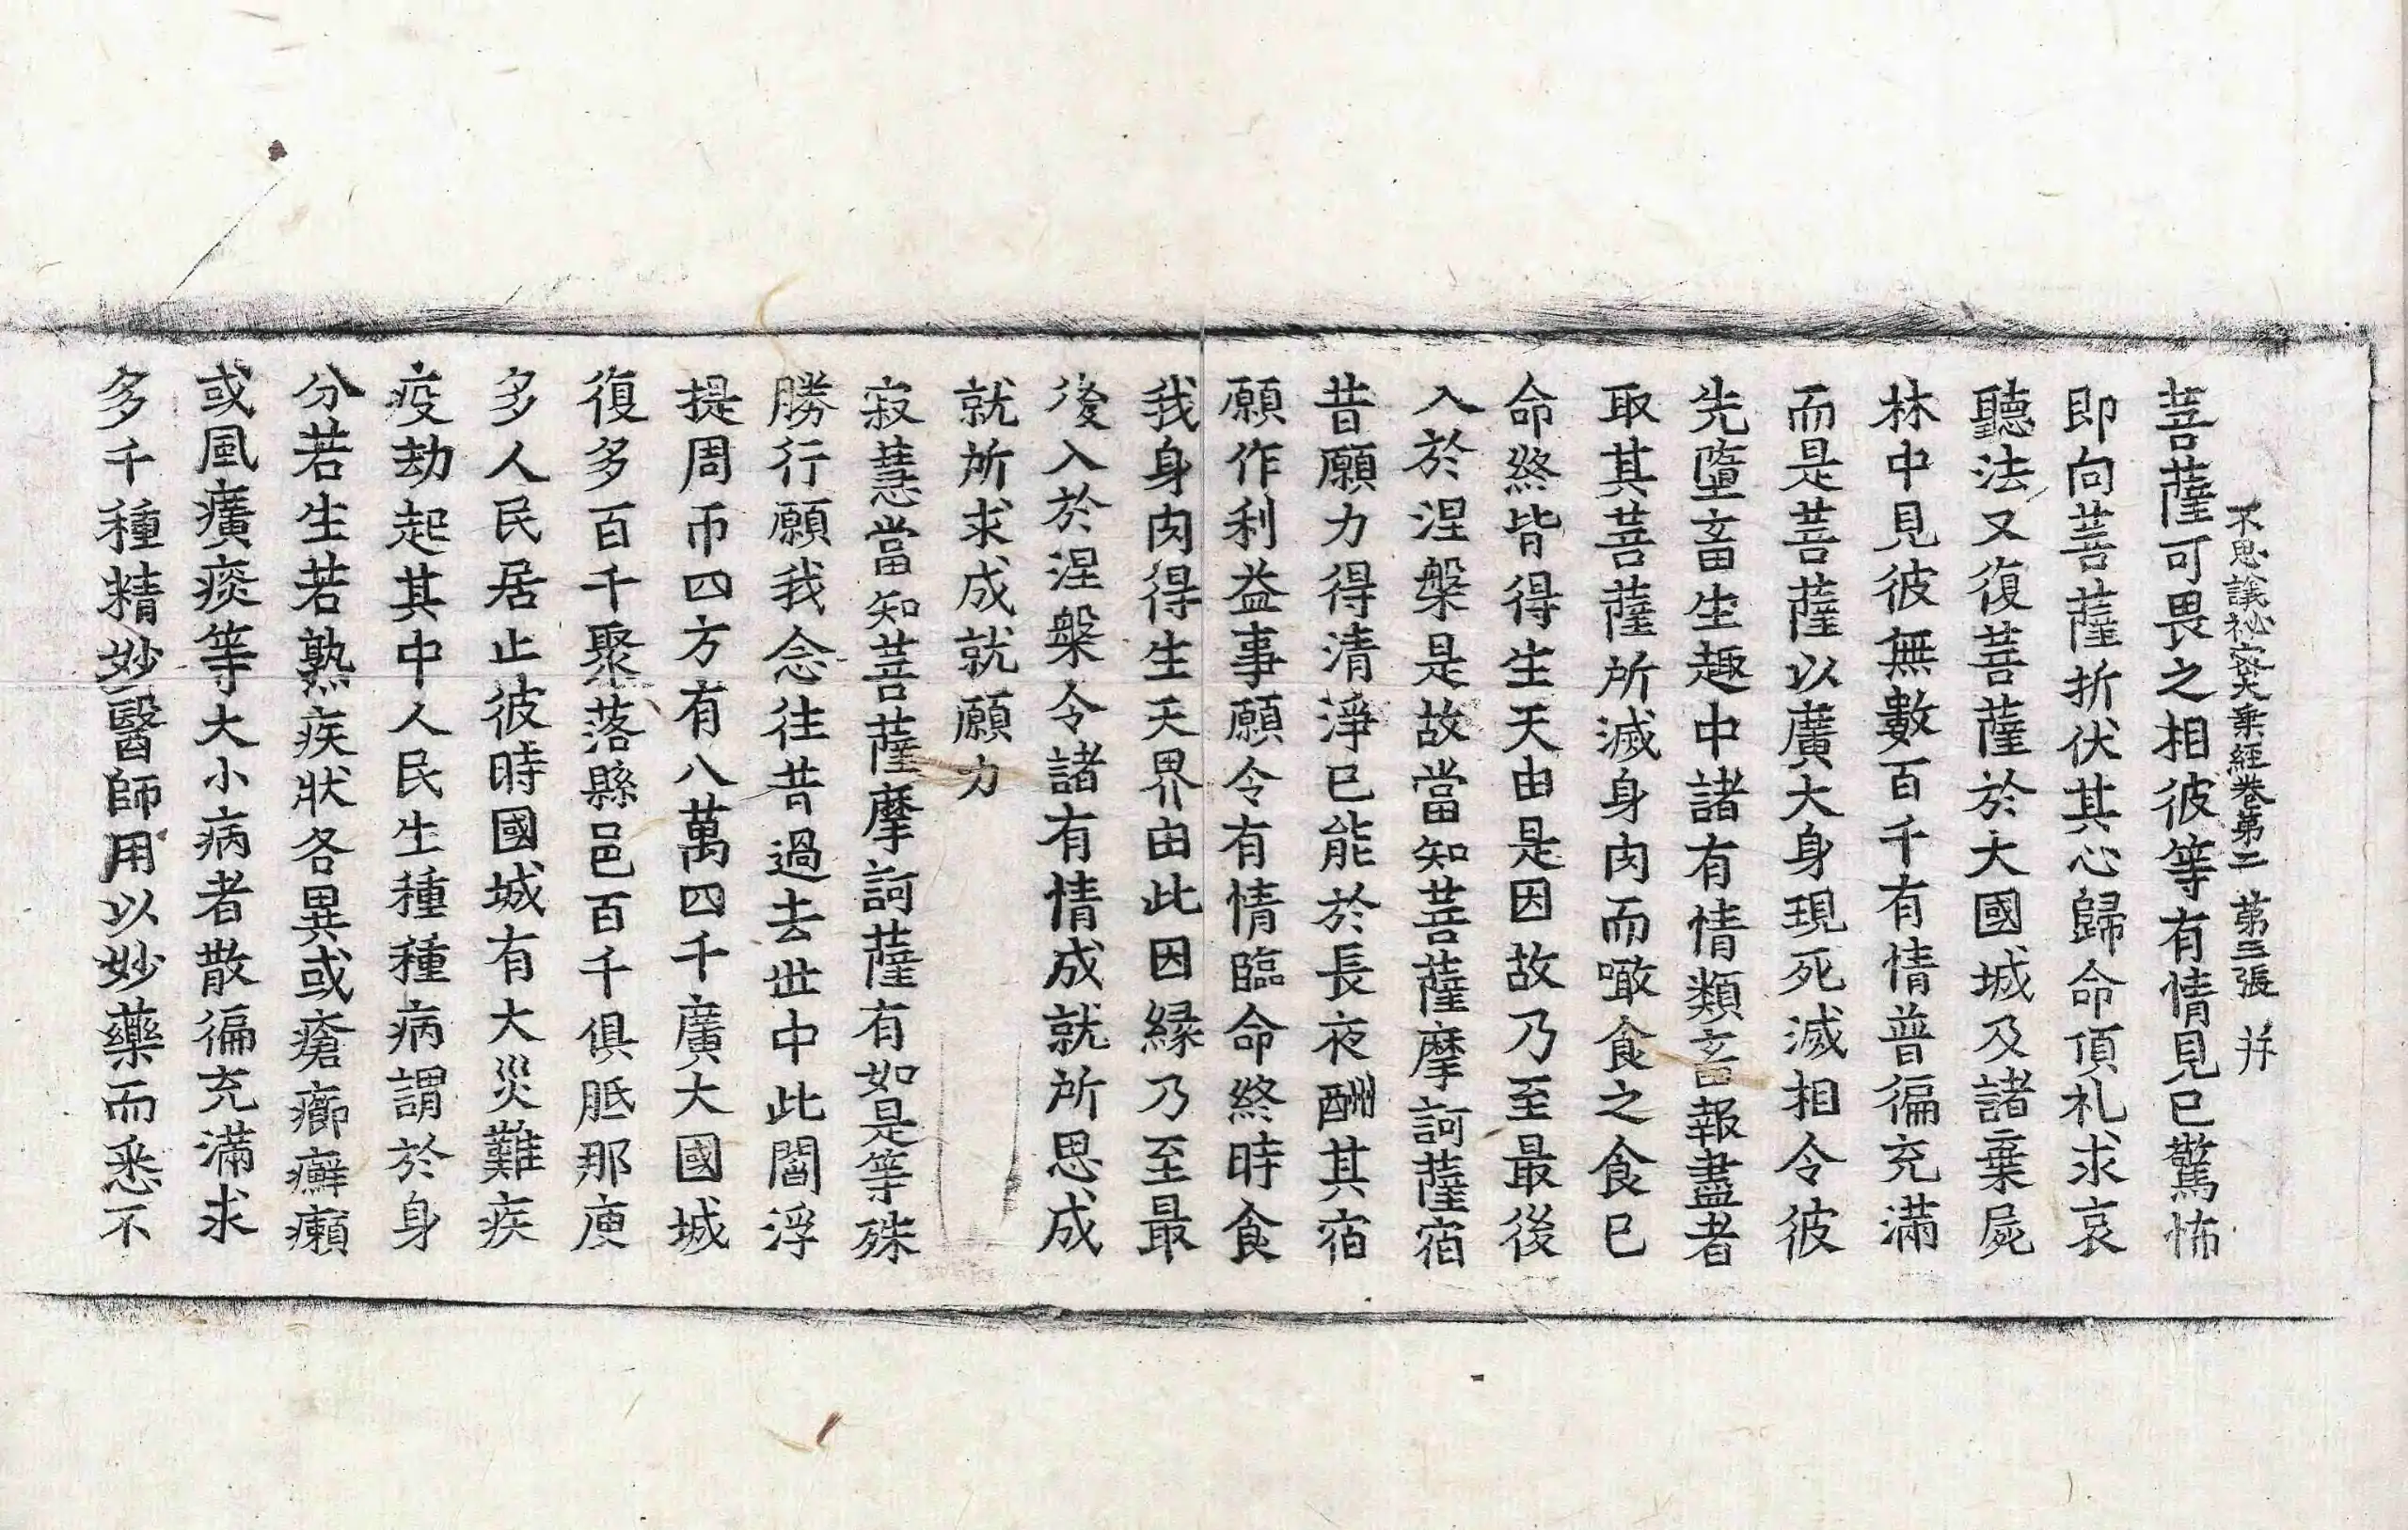 不思議祕密大乘經卷第二 第三張 并
菩薩可畏之相彼等有情見已驚怖
即向菩薩折伏其心歸命頂礼求哀
聽法又復菩薩於大國城及諸棄屍
林中見彼無數百千有情普徧充滿
而是菩薩以廣大身現死滅相令彼
先墮畜生趣中諸有情類畜報盡者
取其菩薩所滅身肉而噉食之食已
命終皆得生天由是因故乃至最後
入於涅槃是故當知菩薩摩訶薩宿
昔願力得清淨已能於長夜酬其宿
願作利益事願令有情臨命終時食
我身肉得生天界由此因緣乃至最
後入於涅槃令諸有情成就所思成
就所求成就願力
寂慧當知菩薩摩訶薩有如是等殊
勝行願我念往昔過去世中此閻浮
提周帀四方有八萬四千廣大國城
復多百千聚落縣邑百千俱胝那庾
多人民居止彼時國城有大災難疾
疫劫起其中人民生種種病謂於身
分若生若熟疾狀各異或瘡癤癬癩
或風癀痰等大小病者散徧充滿求
多千種精妙醫師用以妙藥而悉不